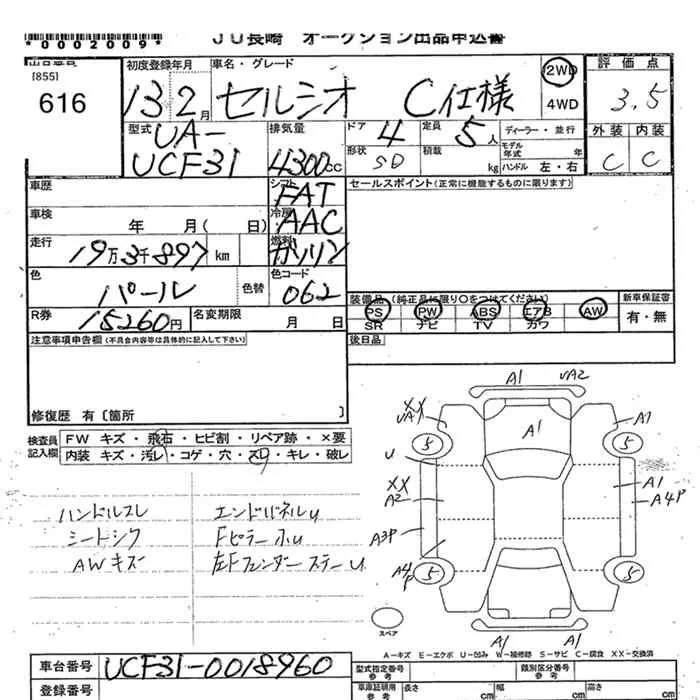 *0002009*
JU長崎 オークション出品申込書
[855]
616
初度登録年月
13年2月
車名・グレード
セルシオ C仕様
2WD
4WD
評価点
3.5
型式
UA-
UCF31
排気量
4300cc
ドア
4
定員
5人
ディーラー・並行
形状
SD
積載
kg
モデル年式
年
ハンドル 左・右
外装 内装
C C
車歴
シフト
FAT
セールスポイント(正常に機能するものに限ります)
車検
年 月( 日)
冷房
AAC
走行
19万3千897km
燃料
ガソリン
色
パール
色替
色コード
062
装備品(純正品に限り○をつけてください)
新車保証書
PS PW ABS エアB AW
有・無
SR ナビ TV カワ
R券
15260円
名変期限
月 日
注意事項申告欄(不具合内容等は具体的に記入して下さい)
後日品
修復歴 有〔箇所 〕
検査員
記入欄
FW キズ・飛石・ヒビ割・リペア跡・×要
内装 キズ・汚レ・コゲ・穴・スレ・キレ・破レ
ハンドルスレ
エンドパネルU
シートシワ
FピラーホU
AWキズ
左FフェンダーステーU
A1
UA2
XX
UA1
A1
A1
5
5
U
XX
A2
A1
A4P
A3P
A4P
5
5
A1
A1
スペア
A-キズ E-エクボ U-凹み W-補修跡 S-サビ C-腐食 XX-交換済
車台番号
UCF31-0018960
登録番号
型式指定番号
参考
類別区分番号
参考
車庫証明用
参考
長さ
cm
幅
cm
高さ
cm